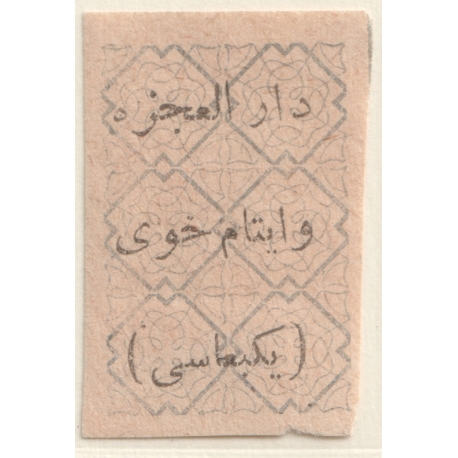 دار العجزه
و ایتام خوی
(یکعباسی)